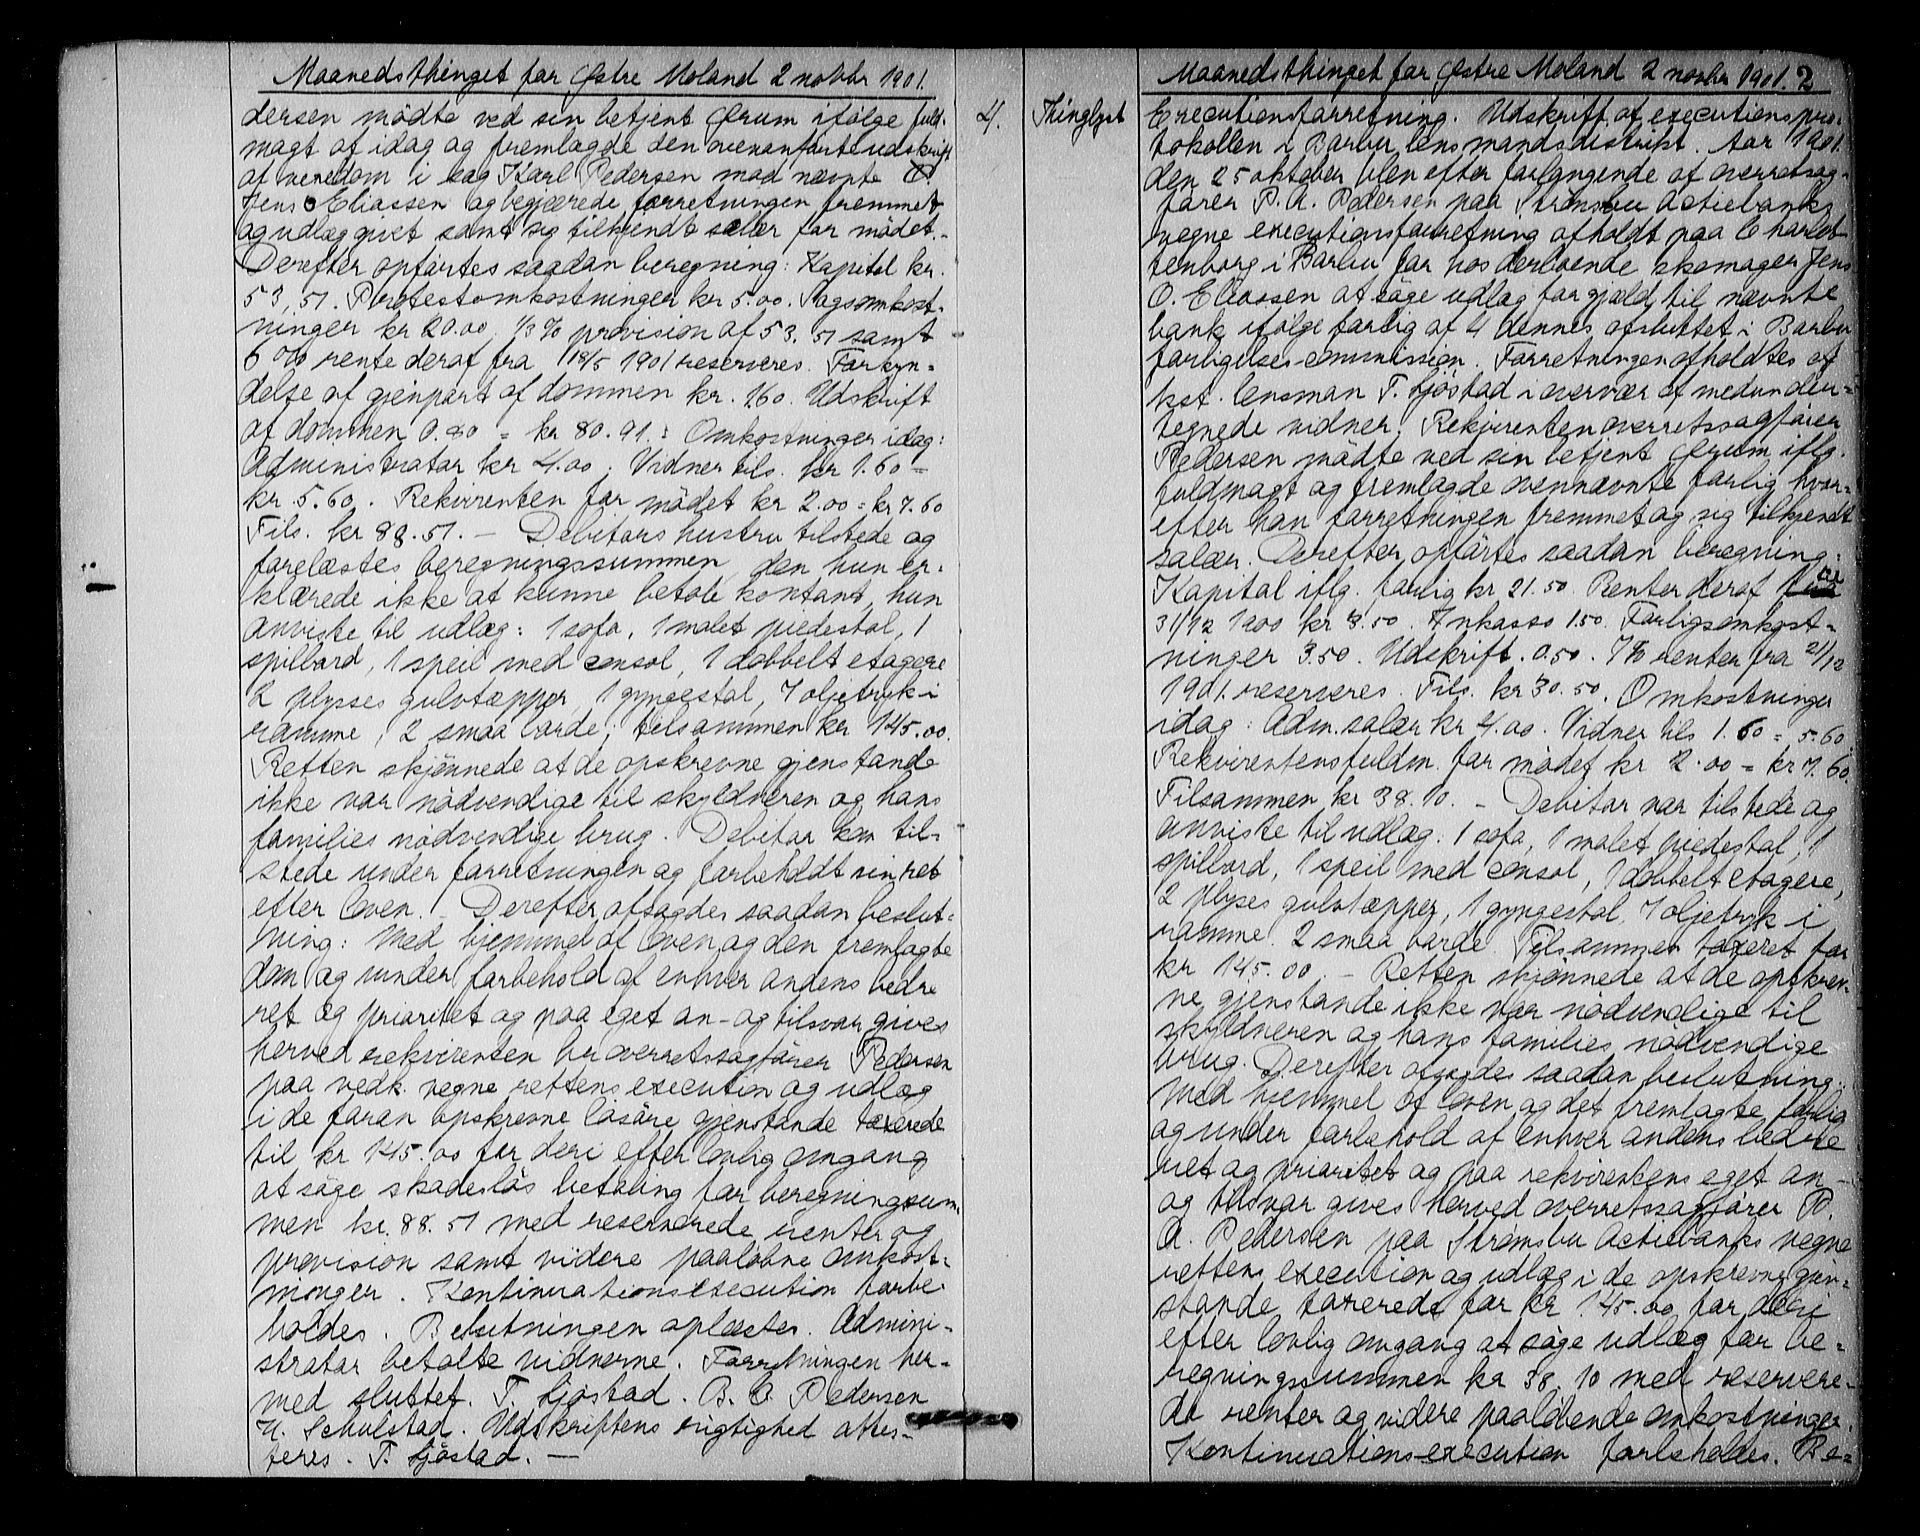 Maanedsthinget for Østre Moland 2 novbr 1901.
dersen mödte ved sin betjent Ørum ifölge fuld-
magt af idag og fremlagde den ovenanförte udskrift
af veredom i sag Karl Pedersen mod nævnte
Jens O Eliassen og begjærede forretningen fremmet
og udlæg givet samt sig tilkjendt salær for mödet.
Derefter opförtes saadan beregning: Kapital kr.
53,51. Protestomkostninger kr 5.00. Sagsomkost-
ninger kr 20.00. 1/3 % provision af 53.51 samt
6 % rente deraf fra 18/5 1901 reserveres. Forkyn-
delse af gjenpart af dommen kr. 1.60. Udskrift
af dommen 0.80 = kr 80.91. Omkostninger idag:
Administrator kr 4.00. Vidner tils. kr 1.60 =
kr. 5.60. Rekvirenten for mödet kr 2.00 = kr 7.60
Tils. kr 88.51. — Debitors hustru tilstede og
forelæstes beregningssummen, den hun er-
klærede ikke at kunne betale kontant, hun
anviste til udlæg: 1 sofa, 1 malet piedestal, 1
spilbord, 1 speil med consol, 1 dobbelt etagere
2 plysses gulvtæpper, 1 gyngestol, 7 oljetryk i
ramme, 2 smaa borde; tilsammen kr 145.00.
Retten skjönnede at de opskrevne gjenstande
ikke var nödvendige til skyldneren og hans
families nödvendige brug. Debitor kom til-
stede under forretningen og forbeholdt sin ret
efter loven. Derefter afsagdes saadan beslut-
ning: Med hjemmel af loven og den fremlagte
dom og under forbehold af enhver andens bedre
ret og prioritet og paa eget an- og tilsvar gives
herved rekvirenten hr overretssagförer Pedersen
paa vedk. vegne rettens execution og udlæg
i de foran opskrevne lösöre gjenstande taxerede
til kr 145.00 for deri efter lovlig omgang
at söge skadeslös betaling for beregningssum
men kr. 88.51 med reserverede renter og
provision samt videre paalöbne omkost-
ninger. Kontinuationsexecution forbe
holdes. Beslutningen oplæstes. Admini-
strator betalte vidnerne. Forretningen her-
med sluttet. T. Sjöstad. B. O. Pedersen
H. Schulstad. Udskriftens rigtighed attes-
teres. T. Sjöstad. —
4. Thinglyst
Maanedsthinget for Østre Moland 2 novbr 1901. 2
Executionsforretning. Udskrift af executionspro-
tokollen i Barbu lensmandsdistrikt. Aar 1901.
den 25 oktober blev efter forlangende af overretssag-
förer P. A. Pedersen paa Strömsbu Actiebanks
vegne executionsforretning afholdt paa Charlot-
tenborg i Barbu for hos derboende skomager Jens
O. Eliassen at söge udlæg for gjæld til nævnte
bank ifölge forlig af 4 dennes afsluttet i Barbu
forligelsescommission. Forretningen afholdtes af
kst. lensman T. Sjöstad i overvær af medunder-
tegnede vidner. Rekvirenten overretssagförer
Pedersen mödte ved sin betjent Ørum iflg.
fuldmagt og fremlagde ovennævnte forlig hvor-
efter han forretningen fremmet og sig tilkjendt
salær. Derefter opförtes saadan beregning:
Kapital iflg. forlig kr 21.50. Renter deraf
31/12 1900 kr 3.50. Inkasso 1.50. Forligsomkost-
ninger 3.50. Udskrift. 0.50. 7 % renter fra 21/12
1901. reserveres. Tils. kr 30.50. Omkostninger
idag: Adm. salær kr 4.00. Vidner tils 1.60 = 5.60.
Rekvirentens fuldm. for mödet kr 2.00 = kr 7.60.
Tilsammen kr 38.10. — Debitor var tilstede og
anviste til udlæg: 1 sofa, 1 malet piedestal, 1
spilbord, 1 speil med consol, 1 dobbelt etagere,
2 plyses gulvtæpper, 1 gyngestol. 7 oljetryk i
ramme. 2 smaa borde. Tilsammen taxeret for
kr 145.00. — Retten skjönnede at de opskrev-
ne gjenstande ikke var nödvendige til
skyldneren og hans families nödvendige
brug. Derefter afsagdes saadan beslutning:
Med hjemmel af loven og det fremlagte forlig
og under forbehold af enhver andens bedre
ret og prioritet og paa rekvirentens eget an-
og tilsvar gives herved overretssagförer P.
A. Pedersen paa Strömsbu Actiebanks vegne
rettens execution og udlæg i de opskrevne gjen-
stande taxerede for kr 145.00 for deri
efter lovlig omgang at söge udlæg for be-
regningssummen kr 38.10 med reservere-
de renter og videre paalöbende omkostninger.
Kontinuationsexecution forbeholdes. Be-